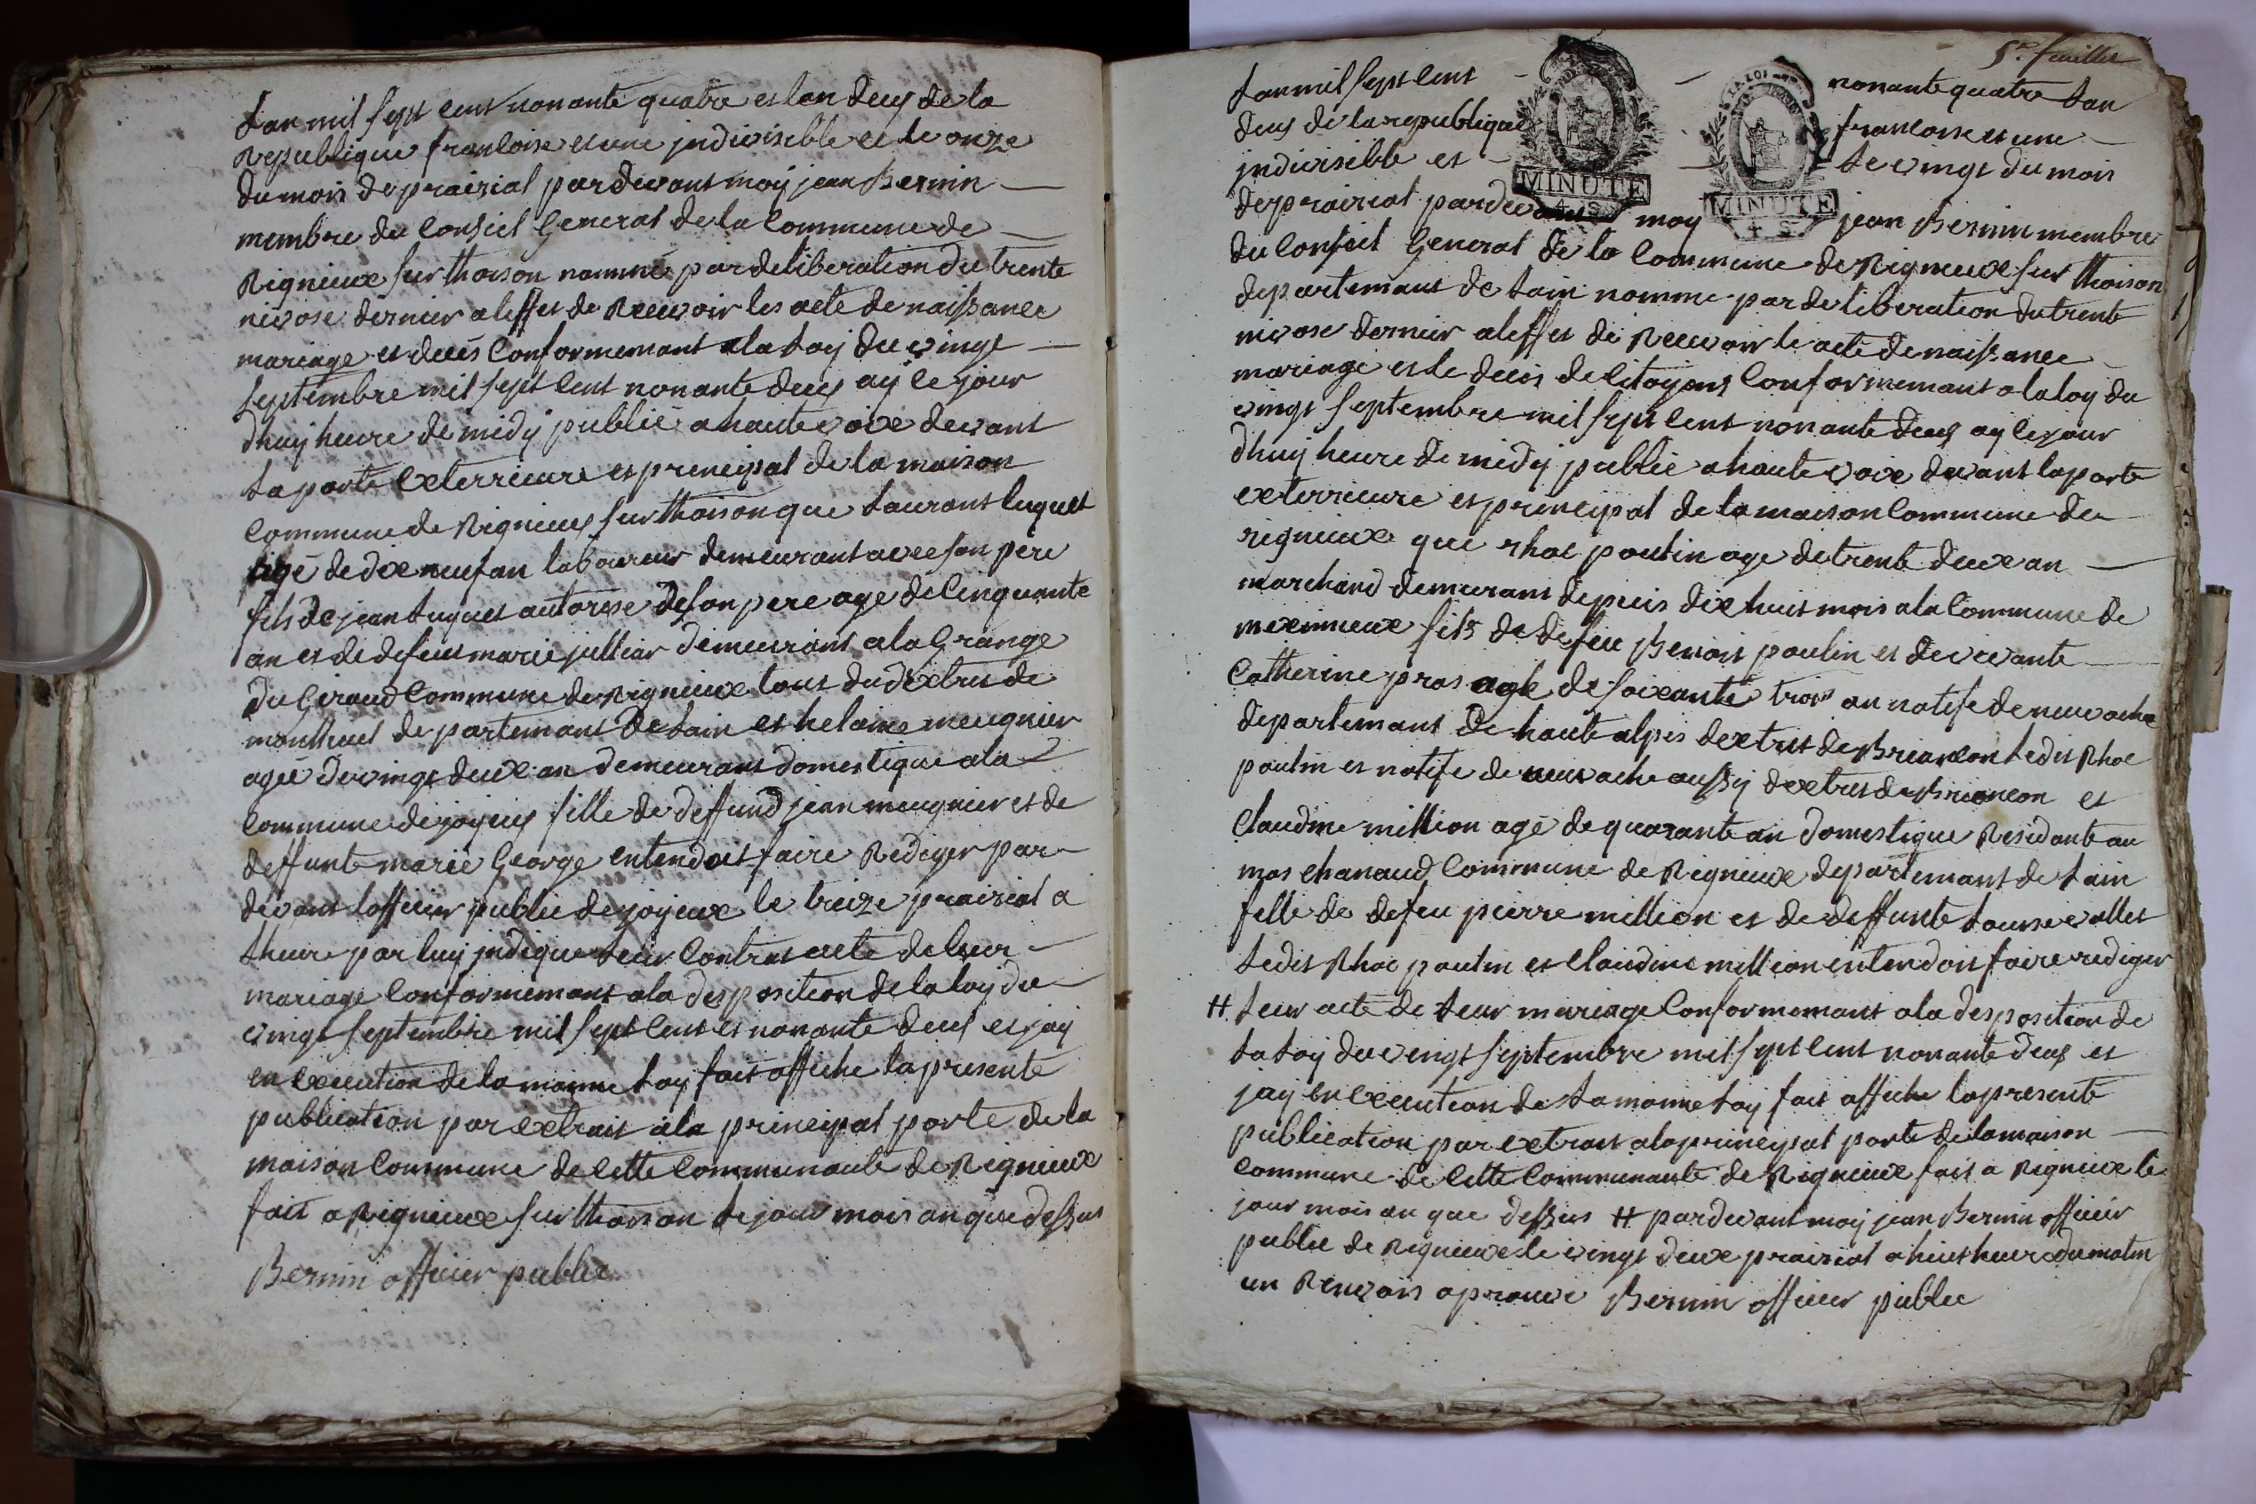 Lan mil sept cent nonante quatre et lan deux de la
Republique francoise et une jndivisible et le onze
du mois de prairial pardevant moy jean Bernin
membre du Conseil General de la Commune de
Rignieux sur thoison nommé par deliberation du trente
nivose dernier a leffet de Recevoir les acte de naissance
mariage et deces Conformemant a la Loy du vingt
septembre mil sept cent nonante deux ay ce jour
dhuy heure de midy publié a haute voix devant
La porte exterrieure et principal de la maison
Commune de Rignieux sur thoison que Laurant Luquet
agé de dix neuf an laboureur demeurant avec son pere
fils de jean Luquet autorise de son pere age de Cinquante
an et de defeue marie jullian demeurant a la Grange
du Giraud Commune de Rignieux tous du dextrit de
montluel departemant de Lain et helaine meugnier
ageé de vingt deux an demeurant domestique a la
Commune de joyeux fille de deffund jean meugnier et de
deffunte marie George entendoit faire Rediger par
devant Lofficier public de joyeux le treize prairial a
Lheure par luy jndique Leur Contrat acte de leur
mariage Conformemant a la desposition de la loy du
vingt septembre mil sept cent et nonante deux et jay
en execution de la maime Loy fait affiche la presente
publication par extrait a la principal porte de la
maison Commune de Cette Communauté de Rignieux
fait a Rignieux sur thoison Le jour mois an que dessus
Bernin officier public
5e. feuillet
Lan mil sept Cent nonante quatre Lan
deux de la republique francoise et une
jndivisible et le vingt du mois
de prairial pardevant moy jean Bernin membre
du Conseil General de la Commune de Rignieux sur thoison
departemant de Lain nomme par deliberation du trente
nivose dernier a leffet de Recevoir le acte de naissance
mariage et le deces de Citoyens Conformemant a la loy du
vingt septembre mil sept cent nonante deux ay ce jour
dhuy heure de midy publie a haute voix devant la porte
exterrieure et principal de la maison Commune de
rignieux que rhoc poutin age de trente deux an
marchand demeurant depuis dix huit mois a la Commune de
meximieux fils de defeu Benoit poutin et de vivante
Catherine pras agé de soixante trois an notife de nevache
departemant de haute alpes dextrit de Briancon Ledit Rhoc
poutin et notife de nevache aussy dextrit de Briancon et
Claudine million agé de quarante an domestique Residante au
mas chanaud Commune de Rignieux departemant de Lain
fille de defeu pierre million et de deffunte Louise vallet
Ledit Rhoc poutin et Claudine million entendoit faire rediger
# Leur acte de Leur mariage Conformemant a la desposition de
La Loy du vingt septembre mil sept cent nonante deux et
jay en execution de La maime Loy fait affiche la presente
publication par extrait a la principal porte de la maison
Commune de Cette Communauté de Rignieux fait a Rignieux le
jour mois an que dessus # pardevant moy jean Bernin officier
public de Rignieux le vingt deux prairial a huit heure du matin
un Renvois aprouvé Bernin officier public
MINUTE
4 S
MINUTE
4 S
LA LOI